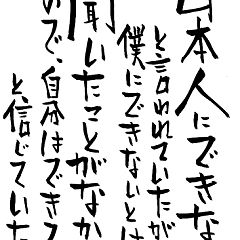 日本人にできな
と言われていたが
僕にできないとは
聞いたことがなか
ので、自分はできる
と信じていた